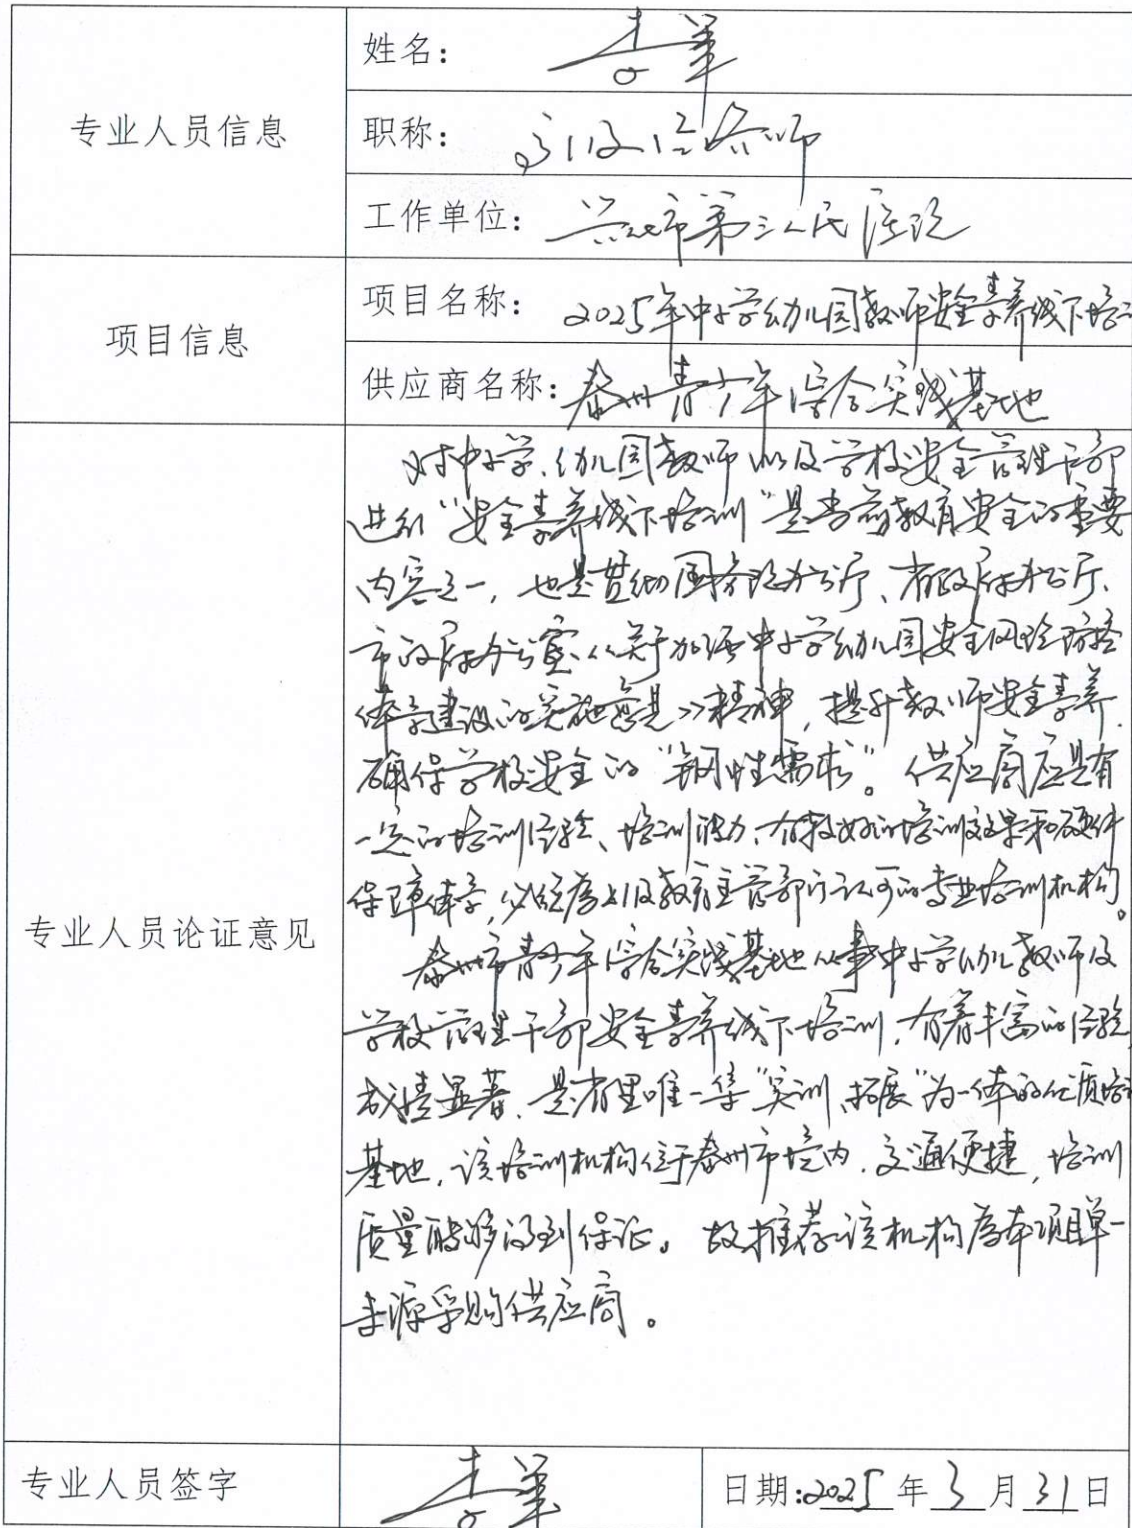 专业人员信息
姓名：李军
职称：高级经济师
工作单位：兴化市第三人民医院
项目信息
项目名称：2025年中小学幼儿园教师安全素养线下培训
供应商名称：泰州青少年综合实践基地
专业人员论证意见
对中小学、幼儿园教师以及学校安全管理干部
进行“安全素养线下培训”是当前教育安全的重要
内容之一，也是贯彻国务院办公厅、省政府办公厅、
市政府办公室《关于加强中小学幼儿园安全风险防控
体系建设的实施意见》精神，提升教师安全素养，
确保学校安全的“钢性需求”。供应商应具有
一定的培训经验、培训能力、有较好的培训效果和硬件
保障体系，必须为上级教育主管部门认可的专业培训机构。
泰州市青少年综合实践基地从事中小学幼儿教师及
学校管理干部安全素养线下培训，有着丰富的经验，
成绩显著，是省里唯一集“实训、拓展”为一体的优质培训
基地，该培训机构位于泰州市境内，交通便捷，培训
质量能够得到保证。故推荐该机构为本项目单一
来源采购供应商。
专业人员签字
李军
日期：2025年3月31日